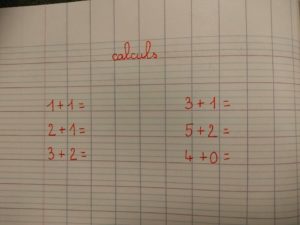 calculs
1+1=
2+1=
3+2=
3+1=
5+2=
4+0=